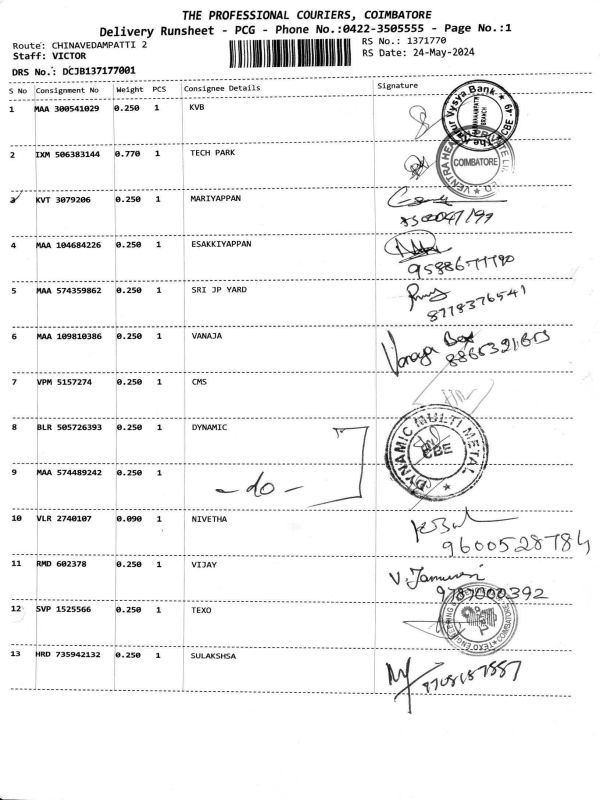 THE PROFESSIONAL COURIERS, COIMBATORE
Delivery Runsheet - PCG - Phone No.:0422-3505555 - Page No.:1
Route: CHINAVEDAMPATTI 2
RS No.: 1371770
Staff: VICTOR
RS Date: 24-May-2024
DRS No.: DCJB137177001
S No Consignment No Weight PCS Consignee Details Signature
1 MAA 300541029 0.250 1 KVB
Vysya Bank
BRANCH
CBE
2 IXM 506383144 0.770 1 TECH PARK
COIMBATORE
3 KVT 3079206 0.250 1 MARIYAPPAN
4 MAA 104684226 0.250 1 ESAKKIYAPPAN
5 MAA 574359862 0.250 1 SRI JP YARD
8778376541
6 MAA 109810386 0.250 1 VANAJA
7 VPM 5157274 0.250 1 CMS
8 BLR 505726393 0.250 1 DYNAMIC
DYNAMIC MULTI METAL
CBE
9 MAA 574489242 0.250 1
- do -
10 VLR 2740107 0.090 1 NIVETHA
9600528784
11 RMD 602378 0.250 1 VIJAY
9787000392
12 SVP 1525566 0.250 1 TEXO
13 HRD 735942132 0.250 1 SULAKSHSA